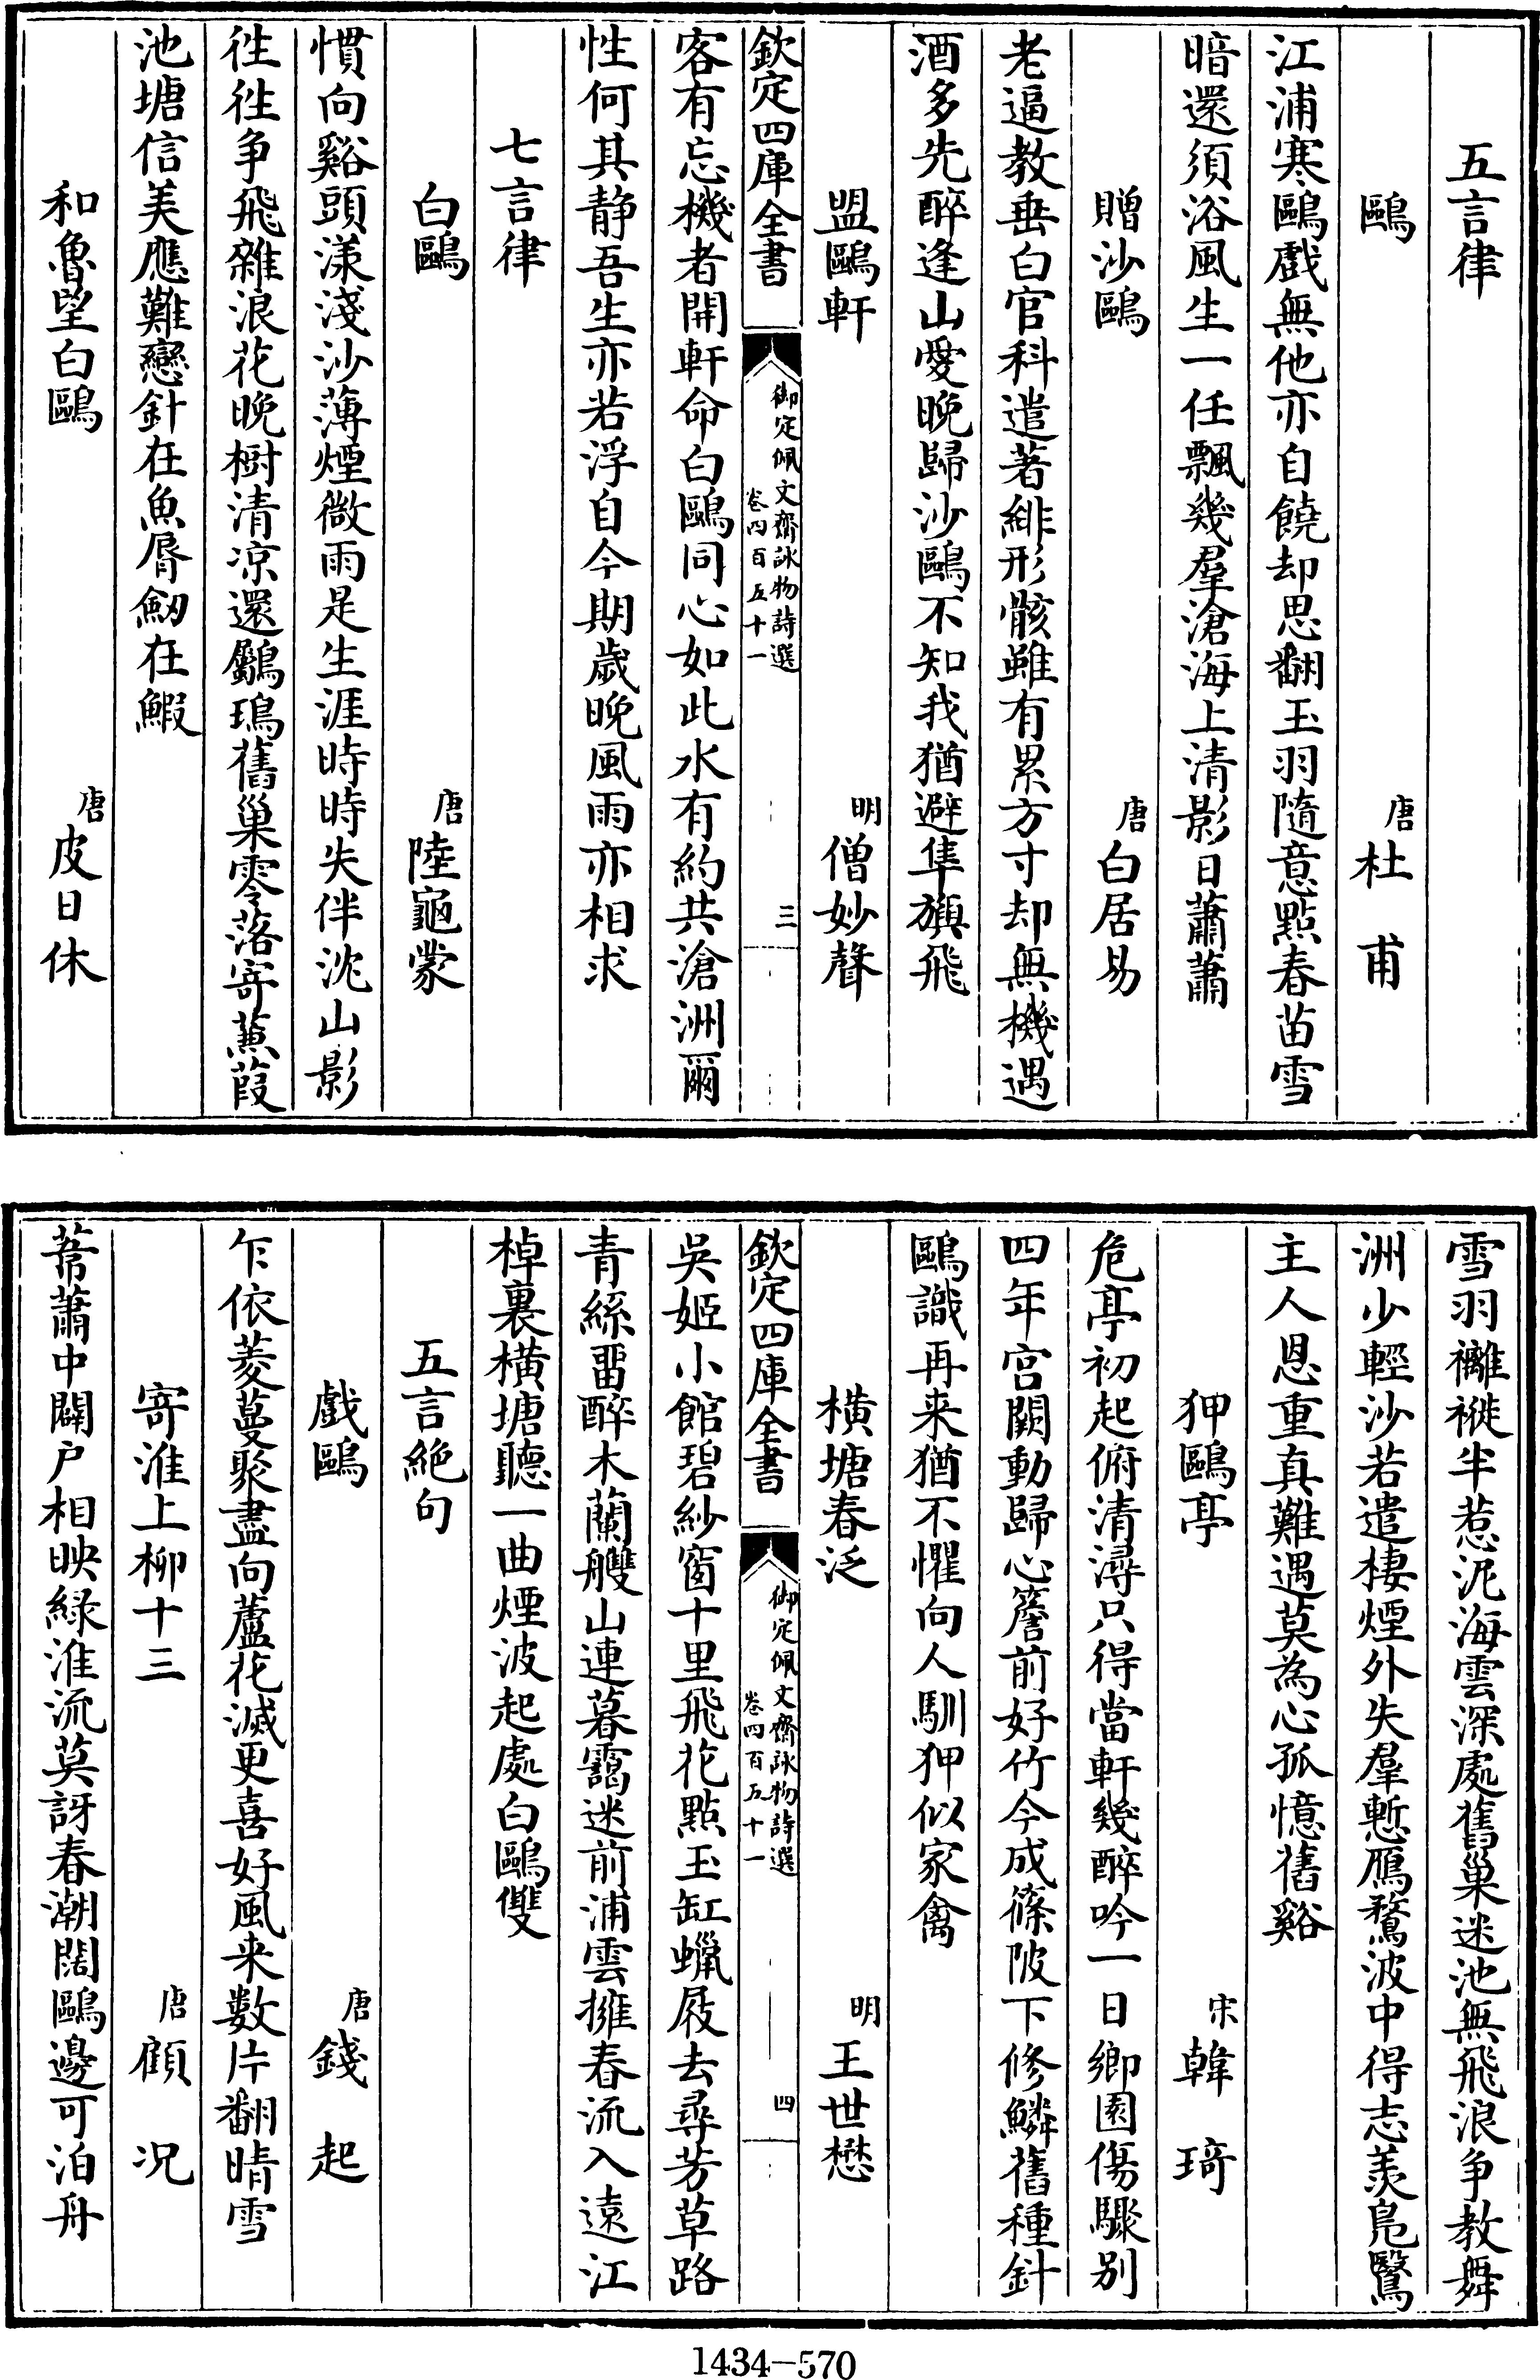 五言律
鷗 唐 杜甫
江浦寒鷗戲無他亦自饒却思翻玉羽隨意點春苗雪
暗還須浴風生一任飄幾羣滄海上清影日蕭蕭
贈沙鷗 唐 白居易
老逼教垂白官科遣著緋形骸雖有累方寸却無機遇
酒多先醉逢山愛晚歸沙鷗不知我猶避隼旟飛
盟鷗軒 明 僧妙聲
欽定四庫全書 御定佩文齋詠物詩選 卷四百五十一 三
客有忘機者開軒命白鷗同心如此水有約共滄洲爾
性何其静吾生亦若浮自今期歲晚風雨亦相求
七言律
白鷗 唐 陸龜蒙
慣向谿頭漾淺沙薄煙微雨是生涯時時失伴沈山影
徃徃争飛雜浪花晚樹清凉還鸀鳿舊巢零落寄蒹葭
池塘信美應難戀針在魚脣劒在鰕
和魯望白鷗 唐 皮日休
雪羽襳褷半惹泥海雲深處舊巢迷池無飛浪争教舞
洲少輕沙若遣棲煙外失羣慙鴈鶩波中得志羨鳬鷖
主人恩重真難遇莫為心孤憶舊谿
狎鷗亭 宋 韓琦
危亭初起俯清潯只得當軒幾醉吟一日鄉園傷驟别
四年宫闕動歸心簷前好竹今成篠陂下修鱗舊種針
鷗識再来猶不懼向人馴狎似家禽
横塘春泛 明 王世懋
欽定四庫全書 御定佩文齋詠物詩選 卷四百五十一 四
吳姬小館碧紗窗十里飛花點玉缸蠟屐去尋芳草路
青絲畱醉木蘭艭山連暮靄迷前浦雲擁春流入遠江
棹裏横塘聽一曲煙波起處白鷗雙
五言絶句
戲鷗 唐 錢起
乍依菱蔓聚盡向蘆花滅更喜好風来數片翻晴雪
寄淮上柳十三 唐 顧况
葦蕭中闢户相映緑淮流莫訝春潮闊鷗邊可泊舟
1434—570